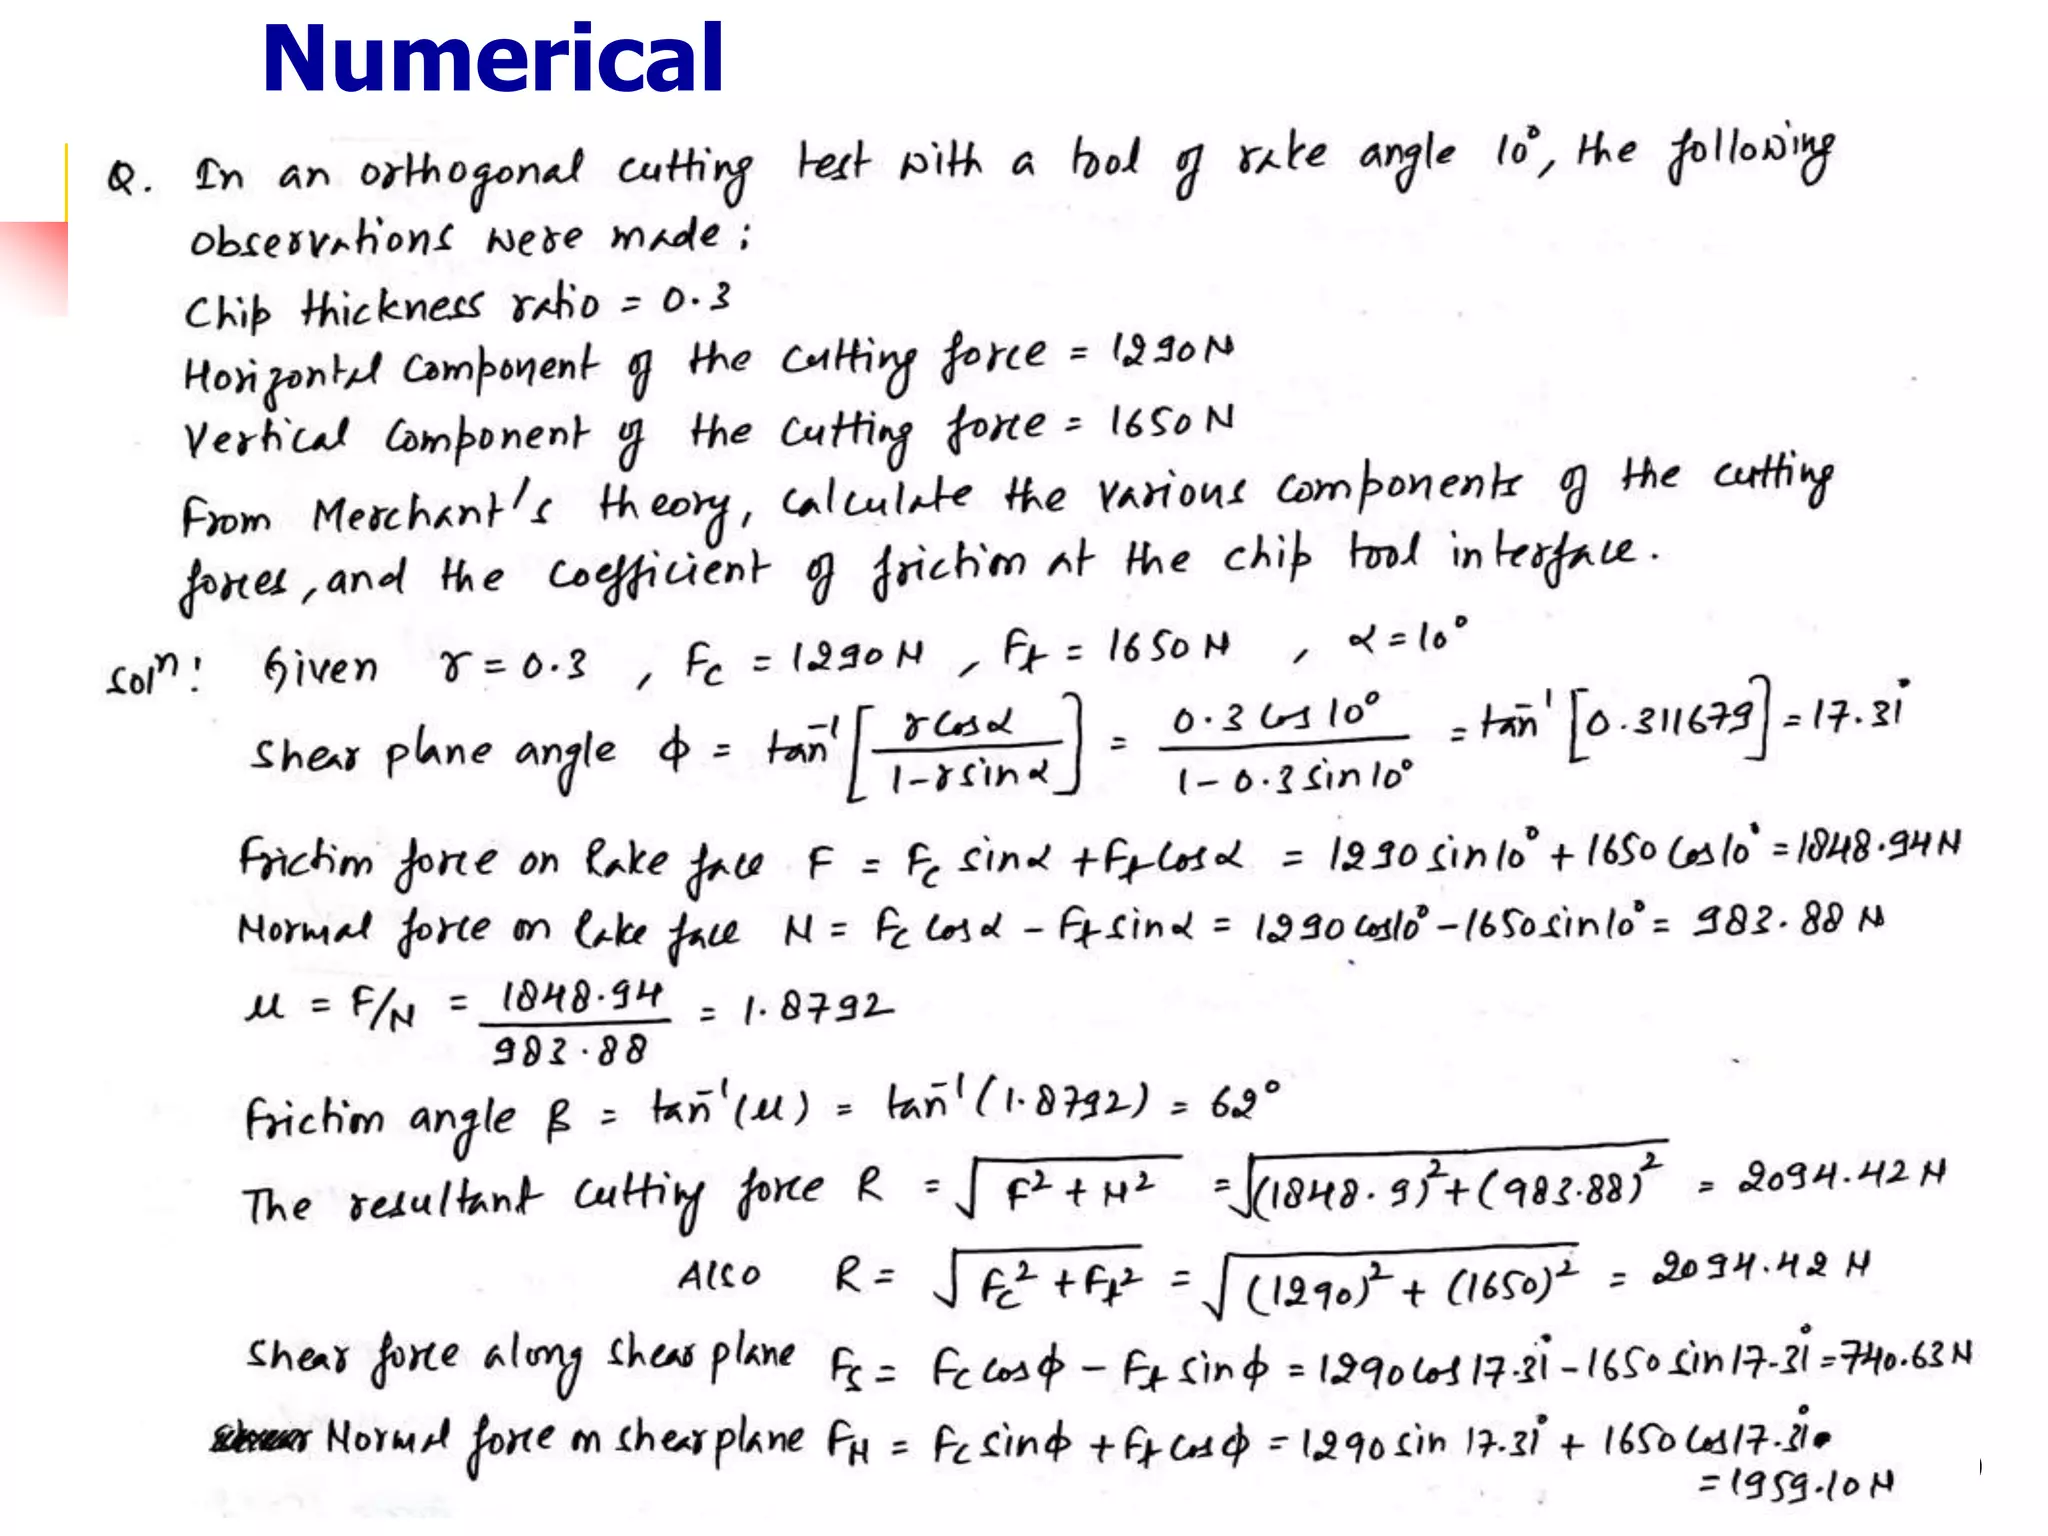 Numerical
Q. In an orthogonal cutting test with a tool of rake angle 10°, the following
observations were made:
Chip thickness ratio = 0.3
Horizontal component of the cutting force = 1290 N
Vertical component of the cutting force = 1650 N
From Merchant's theory, calculate the various components of the cutting
forces, and the coefficient of friction at the chip tool interface.
Solⁿ: Given r = 0.3, Fc = 1290 N, Ft = 1650 N, α = 10°
Shear plane angle φ = tan⁻¹[r cos α / 1 - r sin α] = 0.3 cos 10° / 1 - 0.3 sin 10° = tan⁻¹[0.311679] = 17.31°
Friction force on Rake face F = Fc sin α + Ft cos α = 1290 sin 10° + 1650 cos 10° = 1848.94 N
Normal force on Rake face N = Fc cos α - Ft sin α = 1290 cos 10° - 1650 sin 10° = 983.88 N
μ = F/N = 1848.94 / 983.88 = 1.8792
Friction angle β = tan⁻¹(μ) = tan⁻¹(1.8792) = 62°
The resultant cutting force R = √F² + N² = √(1848.9)² + (983.88)² = 2094.42 N
Also R = √Fc² + Ft² = √(1290)² + (1650)² = 2094.42 N
Shear force along shear plane Fs = Fc cos φ - Ft sin φ = 1290 cos 17.31° - 1650 sin 17.31° = 740.63 N
Normal force on shear plane FN = Fc sin φ + Ft cos φ = 1290 sin 17.31° + 1650 cos 17.31°
= 1959.10 N